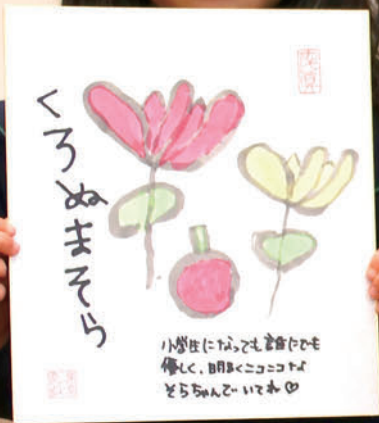 くろぬまそら
小学生になっても誰にでも
優しく、明るくニコニコな
そらちゃんでいてね♡